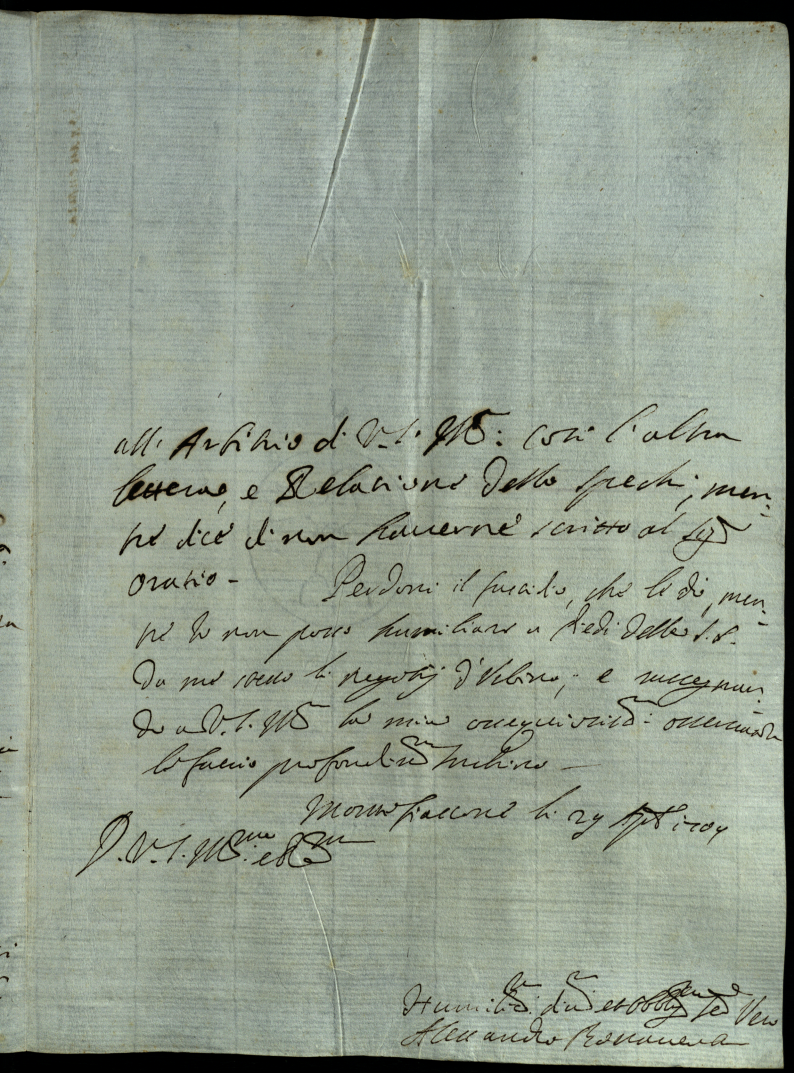 all' Arbitrio di V. S. Ill: con l'altra
lettera, e Relatione dello Specchi, men-
tre dice di non haverne scritto al Sig.r
Oratio - Perdoni il fastido, che le do, men-
tre Io non posso humiliare a Piedi della S. S.
da me stesso li negotij d'Urbino; e rassegnan-
do a V. S. Ill la mia ossequiosiss:
le faccio profondiss inchino -
Montefiascone li 29
D. V. S. Ill.ma e R.ma
Humiliss di et Obblig Vero
Alessandro Bonaventura